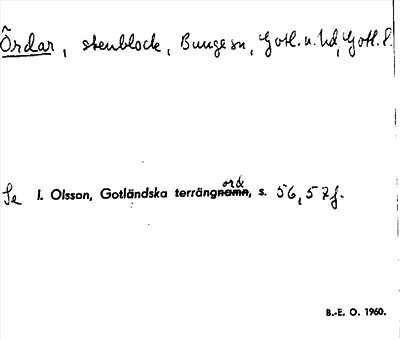 Ördar, stenblock, Bunge sn, Gotl. n. hd, Gotl. l.
Se I. Olsson, Gotländska terrängnamn ord, s. 56, 57f.
B.-E. O. 1960.